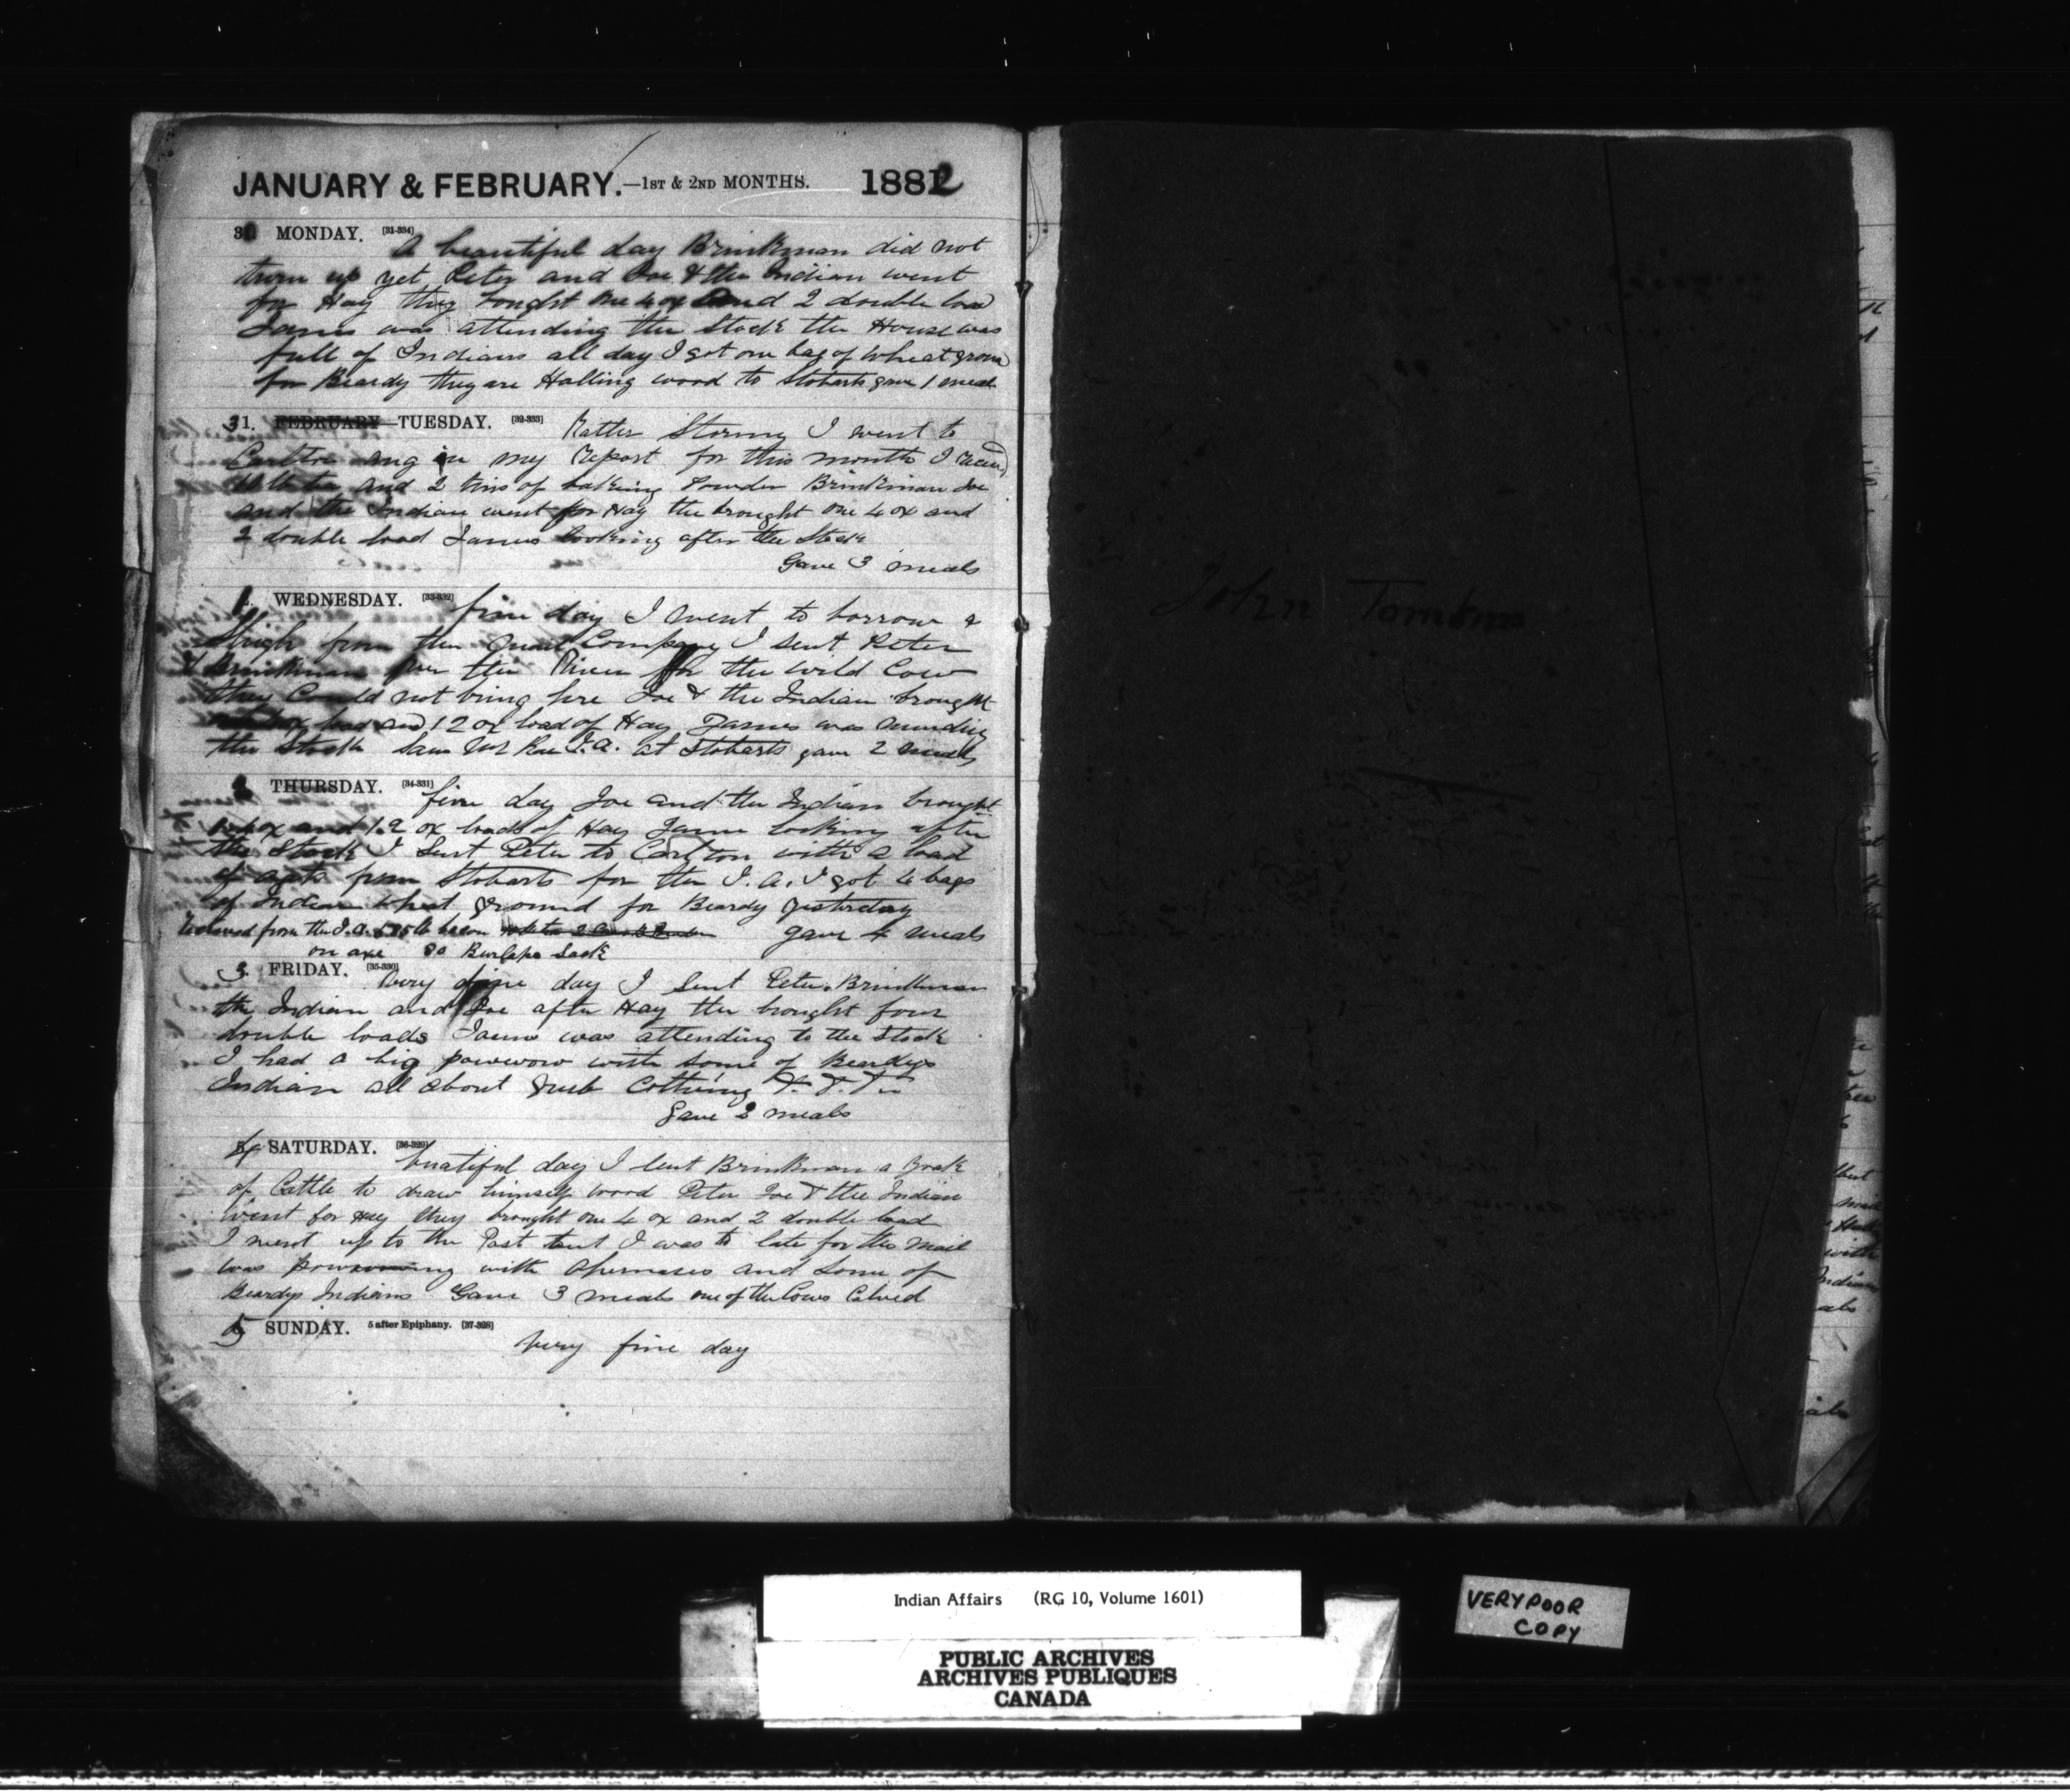 JANUARY & FEBRUARY.—1ST & 2ND MONTHS. 1882
30 MONDAY. [31-334] A beautiful day Brinkman did not
turn up yet Peter and Joe & the Indian went
for Hay they brought one 4 ox and 2 double load
James was attending the Stock the House was
full of Indians all day I got one bag of Wheat
for Beardy they are Halling wood to Stobarts gave 1 meal
31. FEBRUARY—TUESDAY. [32-333] Rather Stormy I went to
Carlton my Report for this month I
and 2 tins of baking Powder Brinkman Joe
and the Indian went for Hay the brought one 4 ox and
2 double load James looking after the Stock
Gave 3 meals
1. WEDNESDAY. [33-332] fine day I went to borrow a
Sleigh from the Mail Company I sent Peter
& Brinkman over the River for the wild Cow
they Could not bring hire Joe & the Indian brought
load and 1 2 ox load of Hay James was minding
the Stock Saw Mr Rae I.A. at Stobarts gave 2 meals
2 THURSDAY. [34-331] fine day Joe and the Indian brought
4 ox and 1.2 ox loads of Hay James looking after
the Stock I Sent Peter to Carlton with a load
of oats from Stobarts for the I.A. I got 4 bags
of Indian Wheat ground for Beardy yesterday
Received from the I.A. lb bacon gave 4 meals
on axe 30 Burlape Sack
3. FRIDAY. [35-330] Very fine day I Sent Peter Brinkman
the Indian and Joe after Hay the brought four
double loads James was attending to the Stock
I had a big powwow with some of Beardys
Indian all about Grub Cothing
Gave 2 meals
4 SATURDAY. [36-329] buatiful day I lent Brinkman a
of Cattle to draw himself wood Peter Joe & the Indian
went for Hay they brought one 4 ox and 2 double load
I went up to the Post but I was to late for the mail
was powwowing with and Some of
Beardys Indians Gave 3 meals one of the Cows Calved
5 SUNDAY. 5 after Epiphany. [37-328] Very fine day
John Tomkins
Indian Affairs (RG 10, Volume 1601)
PUBLIC ARCHIVES
ARCHIVES PUBLIQUES
CANADA
VERY POOR
COPY